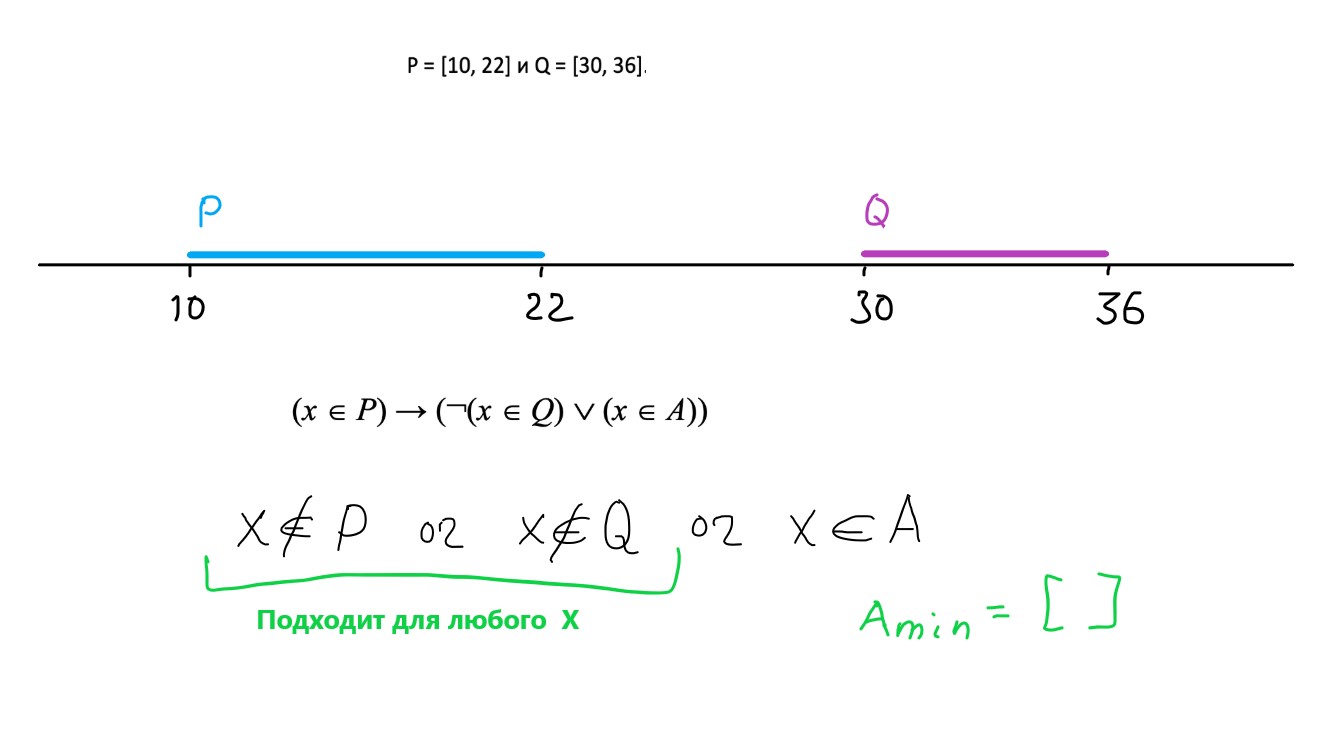 P = [10, 22] и Q = [30, 36].
P Q
10 22 30 36
(x ∈ P) → (¬(x ∈ Q) ∨ (x ∈ A))
X ∉ P or X ∉ Q or X ∈ A
Подходит для любого X
Amin = [ ]